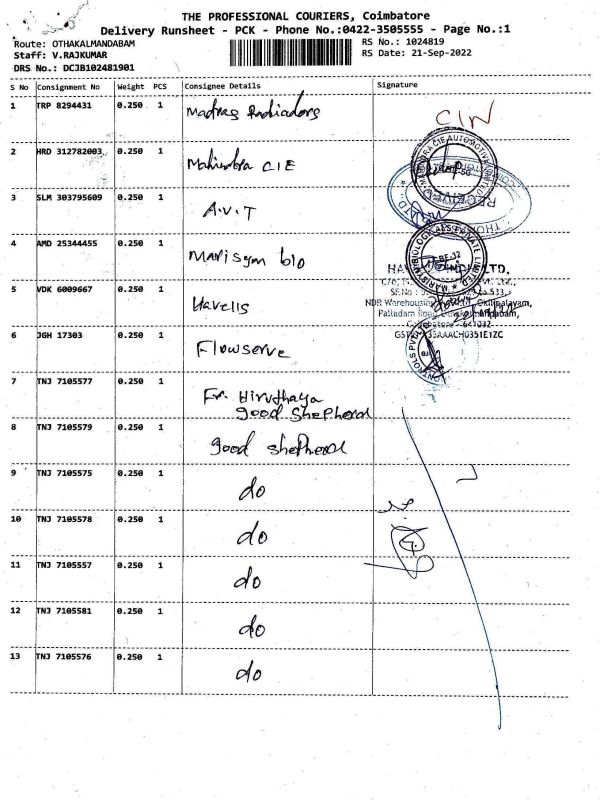 THE PROFESSIONAL COURIERS, Coimbatore
Delivery Runsheet - PCK - Phone No.:0422-3505555 - Page No.:1
Route: OTHAKALMANDABAM
RS No.: 1024819
Staff: V.RAJKUMAR
RS Date: 21-Sep-2022
DRS No.: DCJB102481901
S No Consignment No Weight PCS Consignee Details Signature
1 TRP 8294431 0.250 1 Madras Radiadors
CIN
2 HRD 312782003 0.250 1 Mahindra CIE
3 SLM 303795609 0.250 1 A.V.T
4 AMD 25344455 0.250 1 Marisym bio
5 VDK 6009667 0.250 1 Havells
6 JGH 17303 0.250 1 Flowserve
7 TNJ 7105577 0.250 1 Fr. Hiruthaya
good Shepherd
8 TNJ 7105579 0.250 1 good shepherd
9 TNJ 7105575 0.250 1 do
10 TNJ 7105578 0.250 1 do
11 TNJ 7105557 0.250 1 do
12 TNJ 7105581 0.250 1 do
13 TNJ 7105576 0.250 1 do